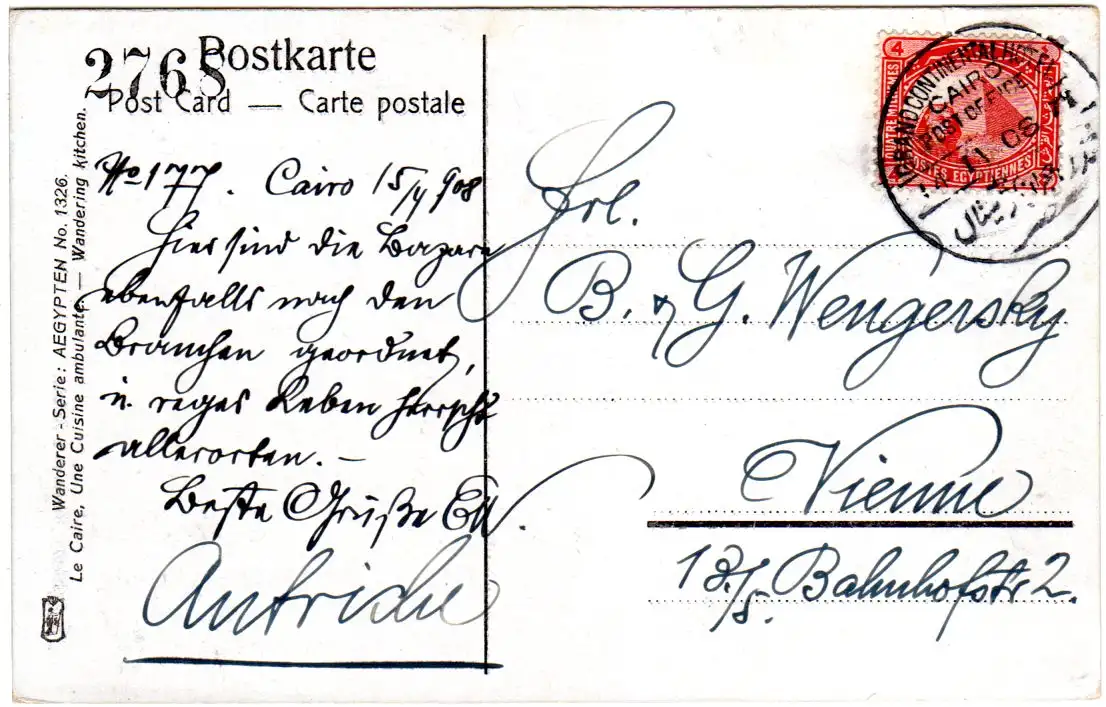 2768
Postkarte
Post Card — Carte postale
Wanderer-Serie: AEGYPTEN No. 1326.
Le Caire, Une Cuisine ambulante — Wandering kitchen.
No 177. Cairo 15/V 908
Hier sind die Bazare
ebenfalls nach den
Branchen geordnet,
u. reges Leben herrscht
allerorten. —
Beste Grüße
Autriche
4
QUATRE MILLIEMES
POSTES EGYPTIENNES
GRAND CONTINENTAL HOTEL
CAIRO
POST OFFICE
Frl.
B. & G. Wengersky
Vienne
Bahnhofstr 2.